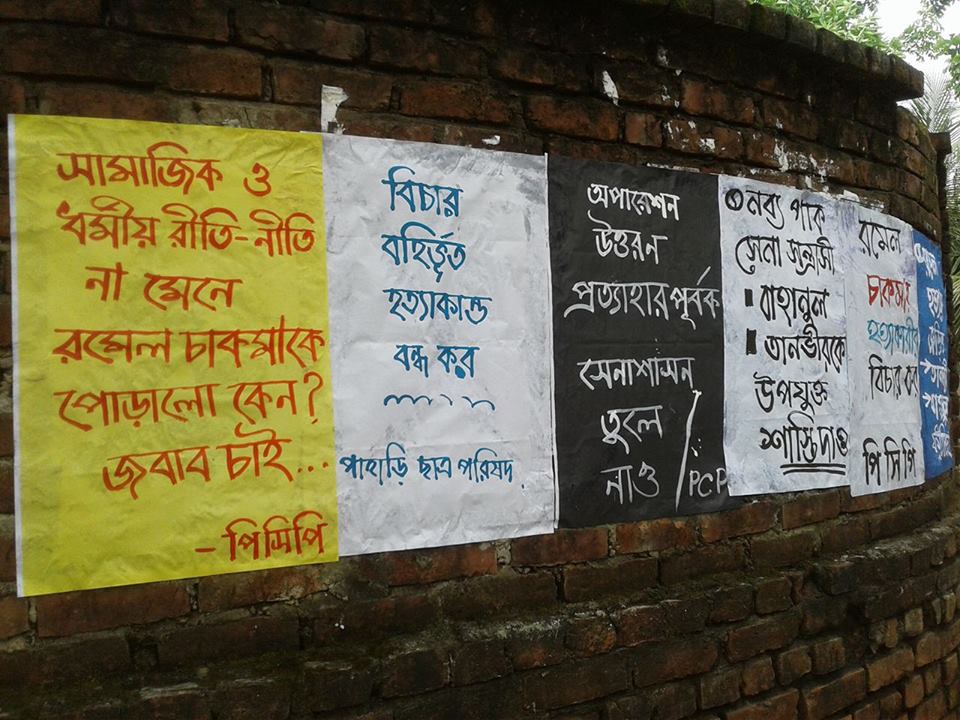 সামাজিক ও
ধর্মীয় রীতি-নীতি
না মেনে
রমেল চাকমাকে
পোড়ালো কেন?
জবাব চাই...
- পিসিপি
বিচার
বহির্ভূত
হত্যাকান্ড
বন্ধ কর
পাহাড়ি ছাত্র পরিষদ
অপারেশন
উত্তরন
প্রত্যাহার পূর্বক
সেনাশাসন
তুলে
নাও
PCP
নব্য পাক
সেনা সন্ত্রাসী
বাহানুল
তানভীরকে
উপযুক্ত
শাস্তি দাও
রমেল
চাকমার
হত্যাকারীর
বিচার কর
পি সি পি